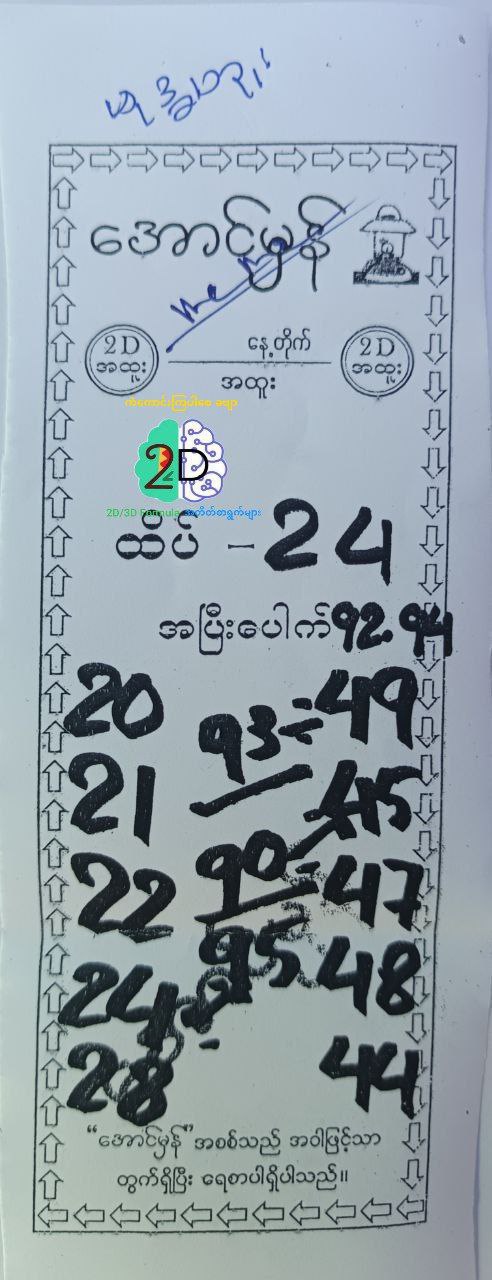 အောင်မှန်
2D အထူး
နေ့တိုက်
အထူး
2D အထူး
ကံကောင်းကြပါစေ ခဗျာ
2D
2D/3D Formula အတိတ်စာရွက်များ
ထိပ် - 24
အပြီးပေါက် 92. 94
20 93 = 49
21 45
22 90 - 47
24 95 48
28 44
"အောင်မှန်" အစစ်သည် အဝါဖြင့်သာ
တွက်ရှိပြီး ရေစာပါရှိပါသည်။